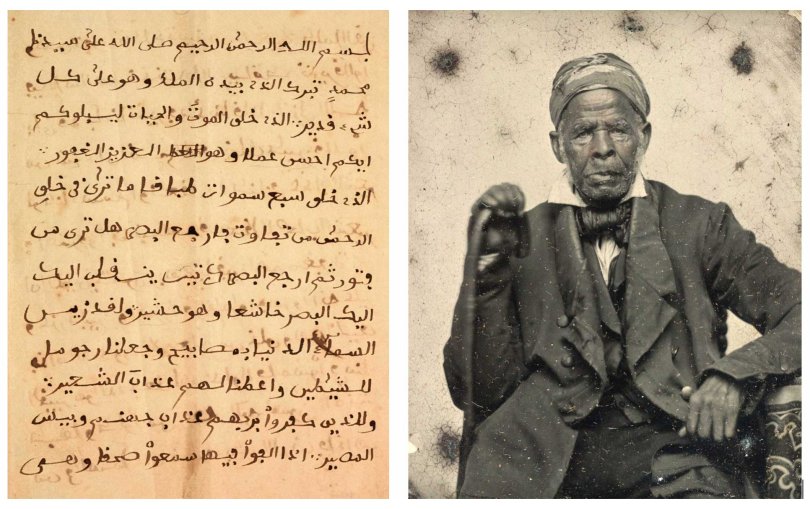 بسم الله الرحمن الرحيم صلى الله على سيدنا
محمد تبرك الذي بيده الملك وهو على كل
شيء قدير الذي خلق الموت والحيات ليبلوكم
ايكم احسن عملا وهو العزيز الغفور
الذي خلق سبع سموات طباقا ما ترى في خلق
الرحمن من تفاوت فارجع البصر هل ترى من
فتور ثم ارجع البصر ينقلب اليك
اليك البصر خاشعا وهو حشير ولقد زين
السماء الدنيا بمصابيح وجعلنا
للشيطين واعطنا لهم عذاب الشعير
وللذين كفروا بربهم عذاب جهنم وبيس
المصير اذا القوا فيها سمعوا